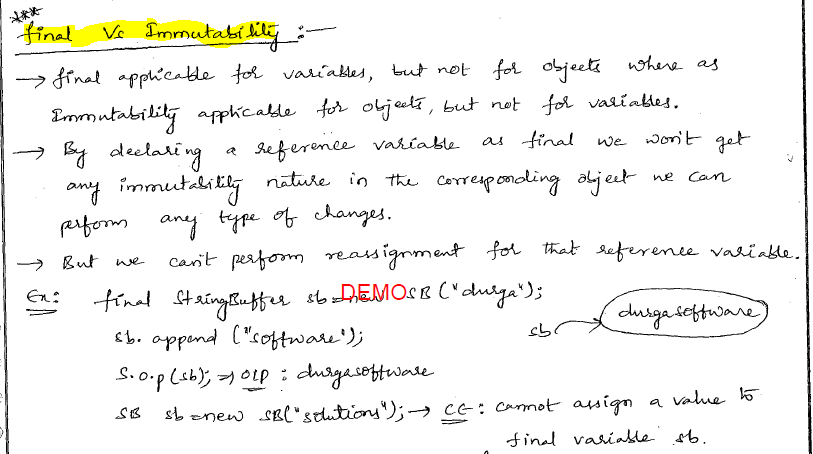 ***
final Vs Immutability :-
→ final applicable for variables, but not for objects where as
Immutability applicable for objects, but not for variables.
→ By declaring a reference variable as final we won't get
any immutability nature in the corresponding object we can
perform any type of changes.
→ But we can't perform reassignment for that reference variable.
Ex: final StringBuffer sb = new SB ("durga");
DEMO
sb. append ("software");
sb → durgasoftware
S.o.p (sb); ⇒ O/P : durgasoftware
SB sb = new SB("solutions"); → CE : cannot assign a value to
final variable sb.